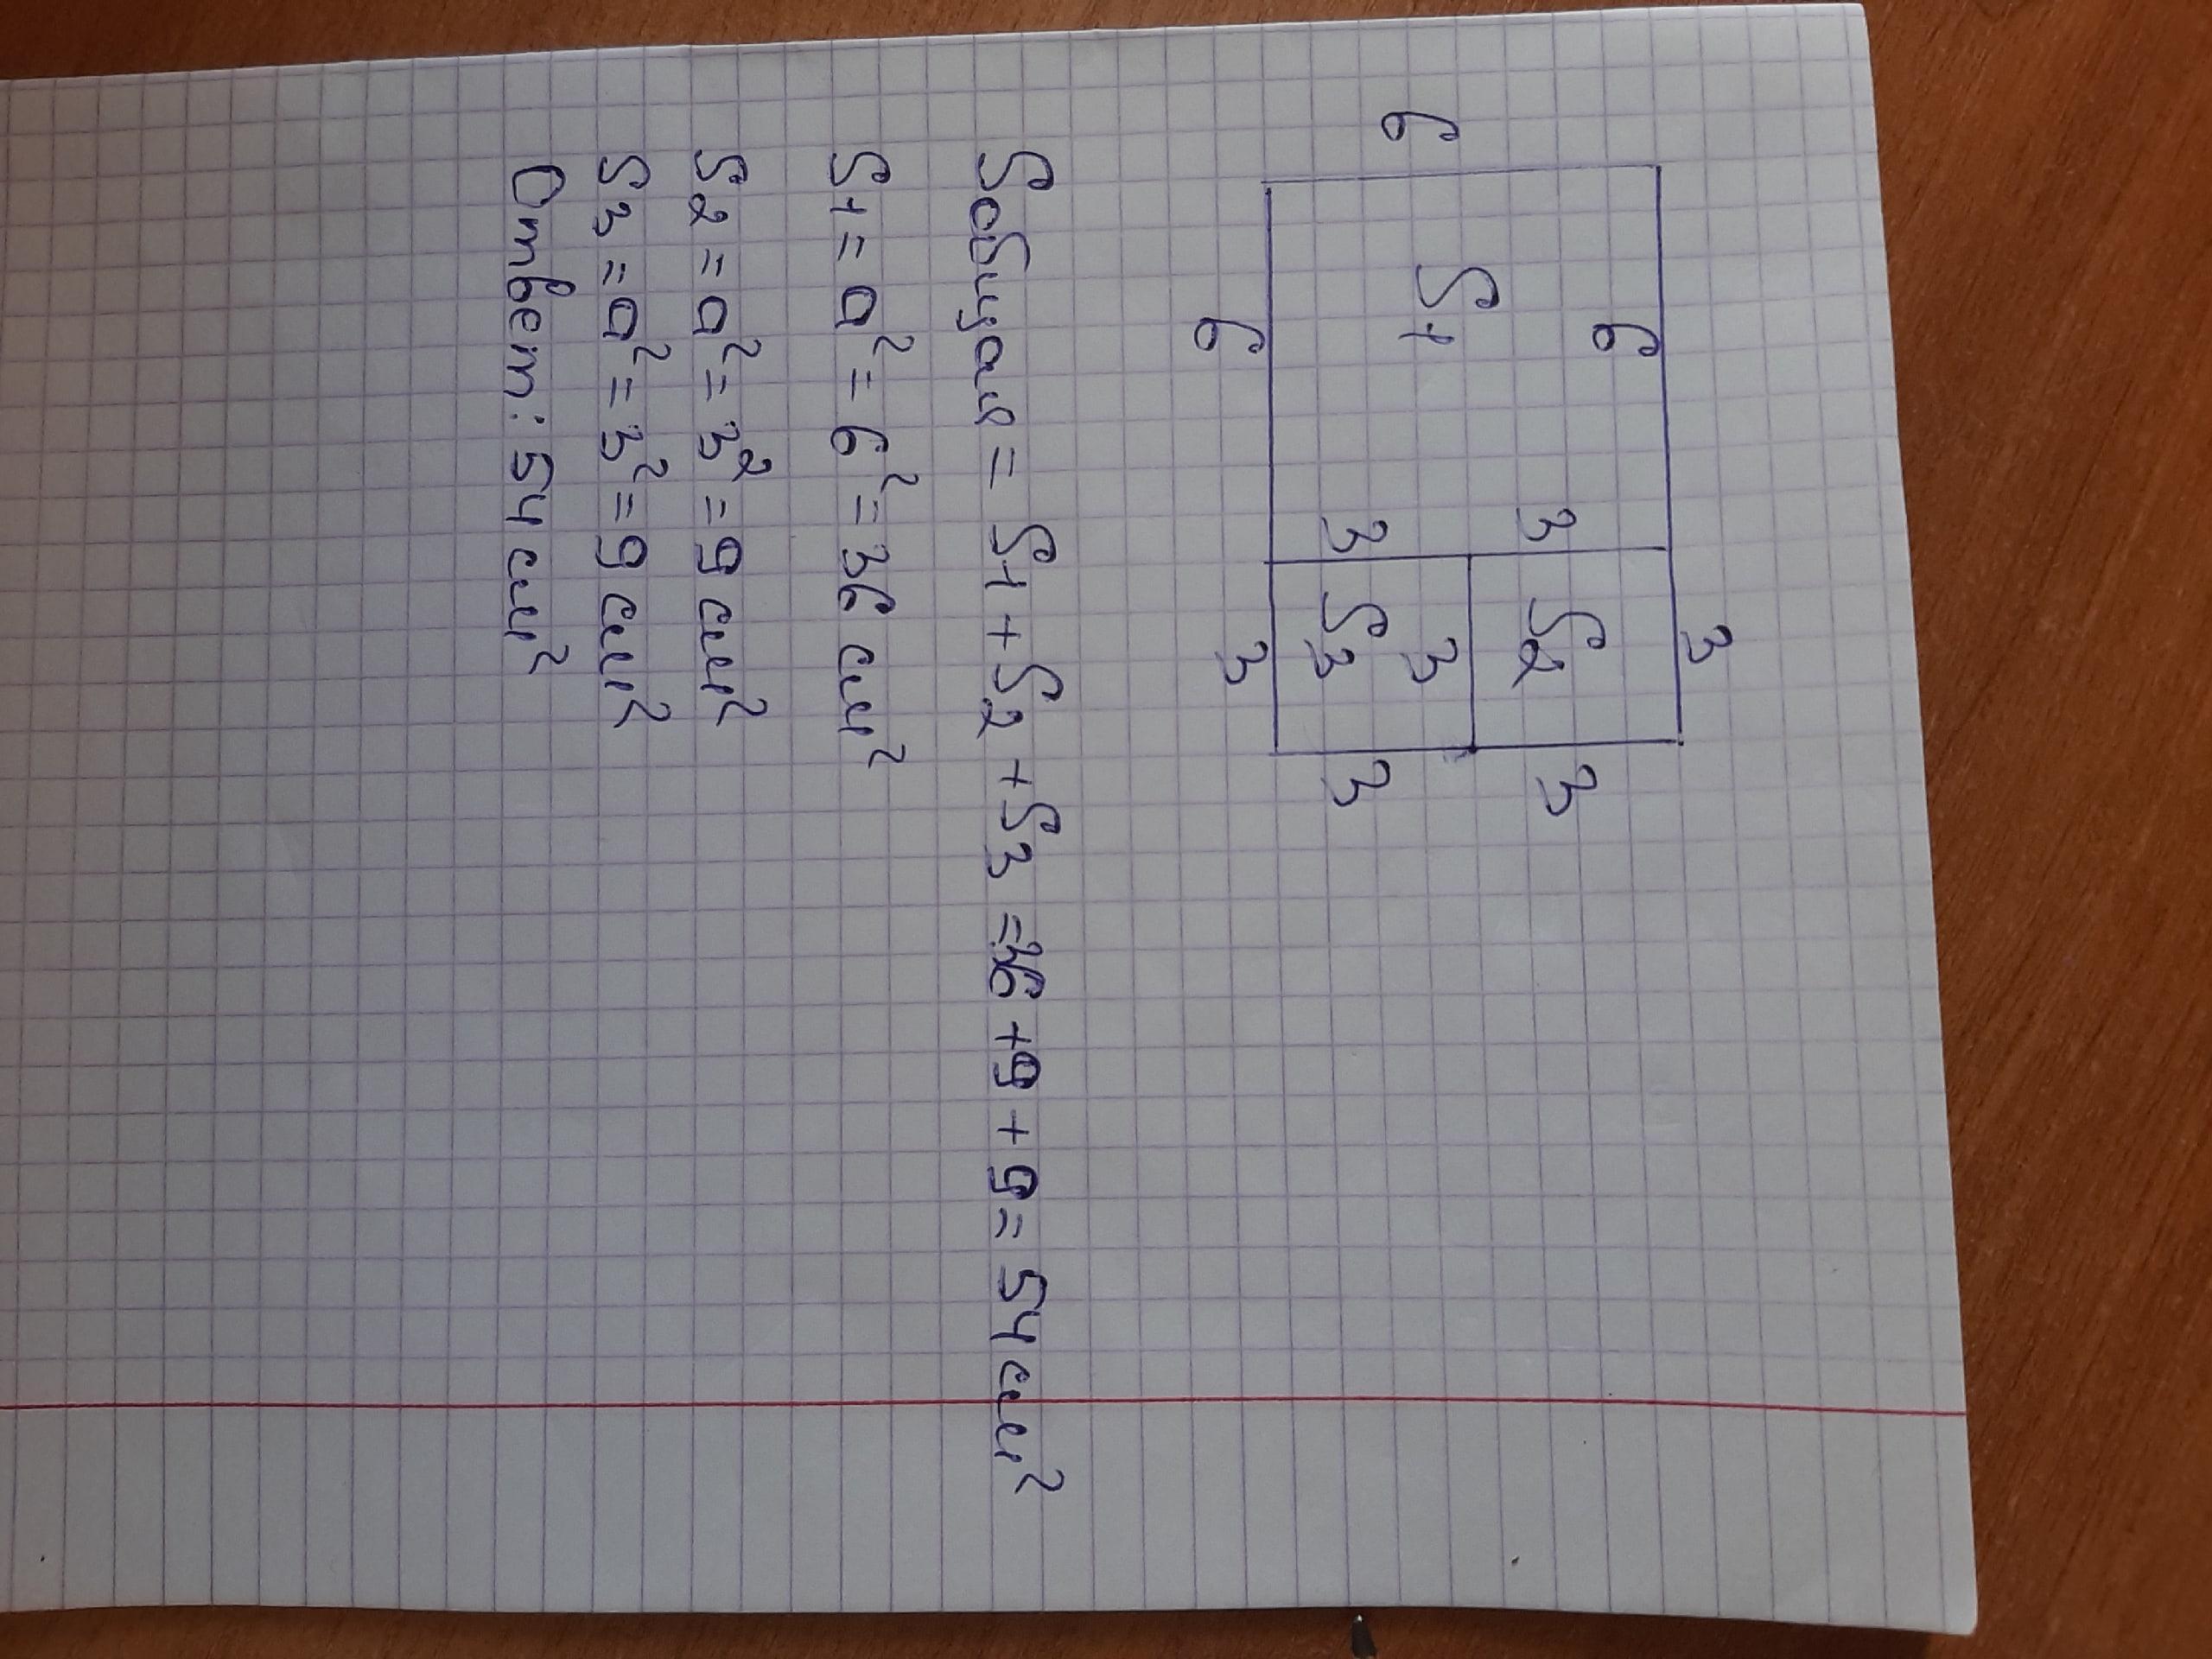 6 3
6 S1 3 S2 3
3
3 S3 3
6 3
Sобщая = S1 + S2 + S3 = 36 + 9 + 9 = 54 см²
S1 = a² = 6² = 36 см²
S2 = a² = 3² = 9 см²
S3 = a² = 3² = 9 см²
Ответ: 54 см²